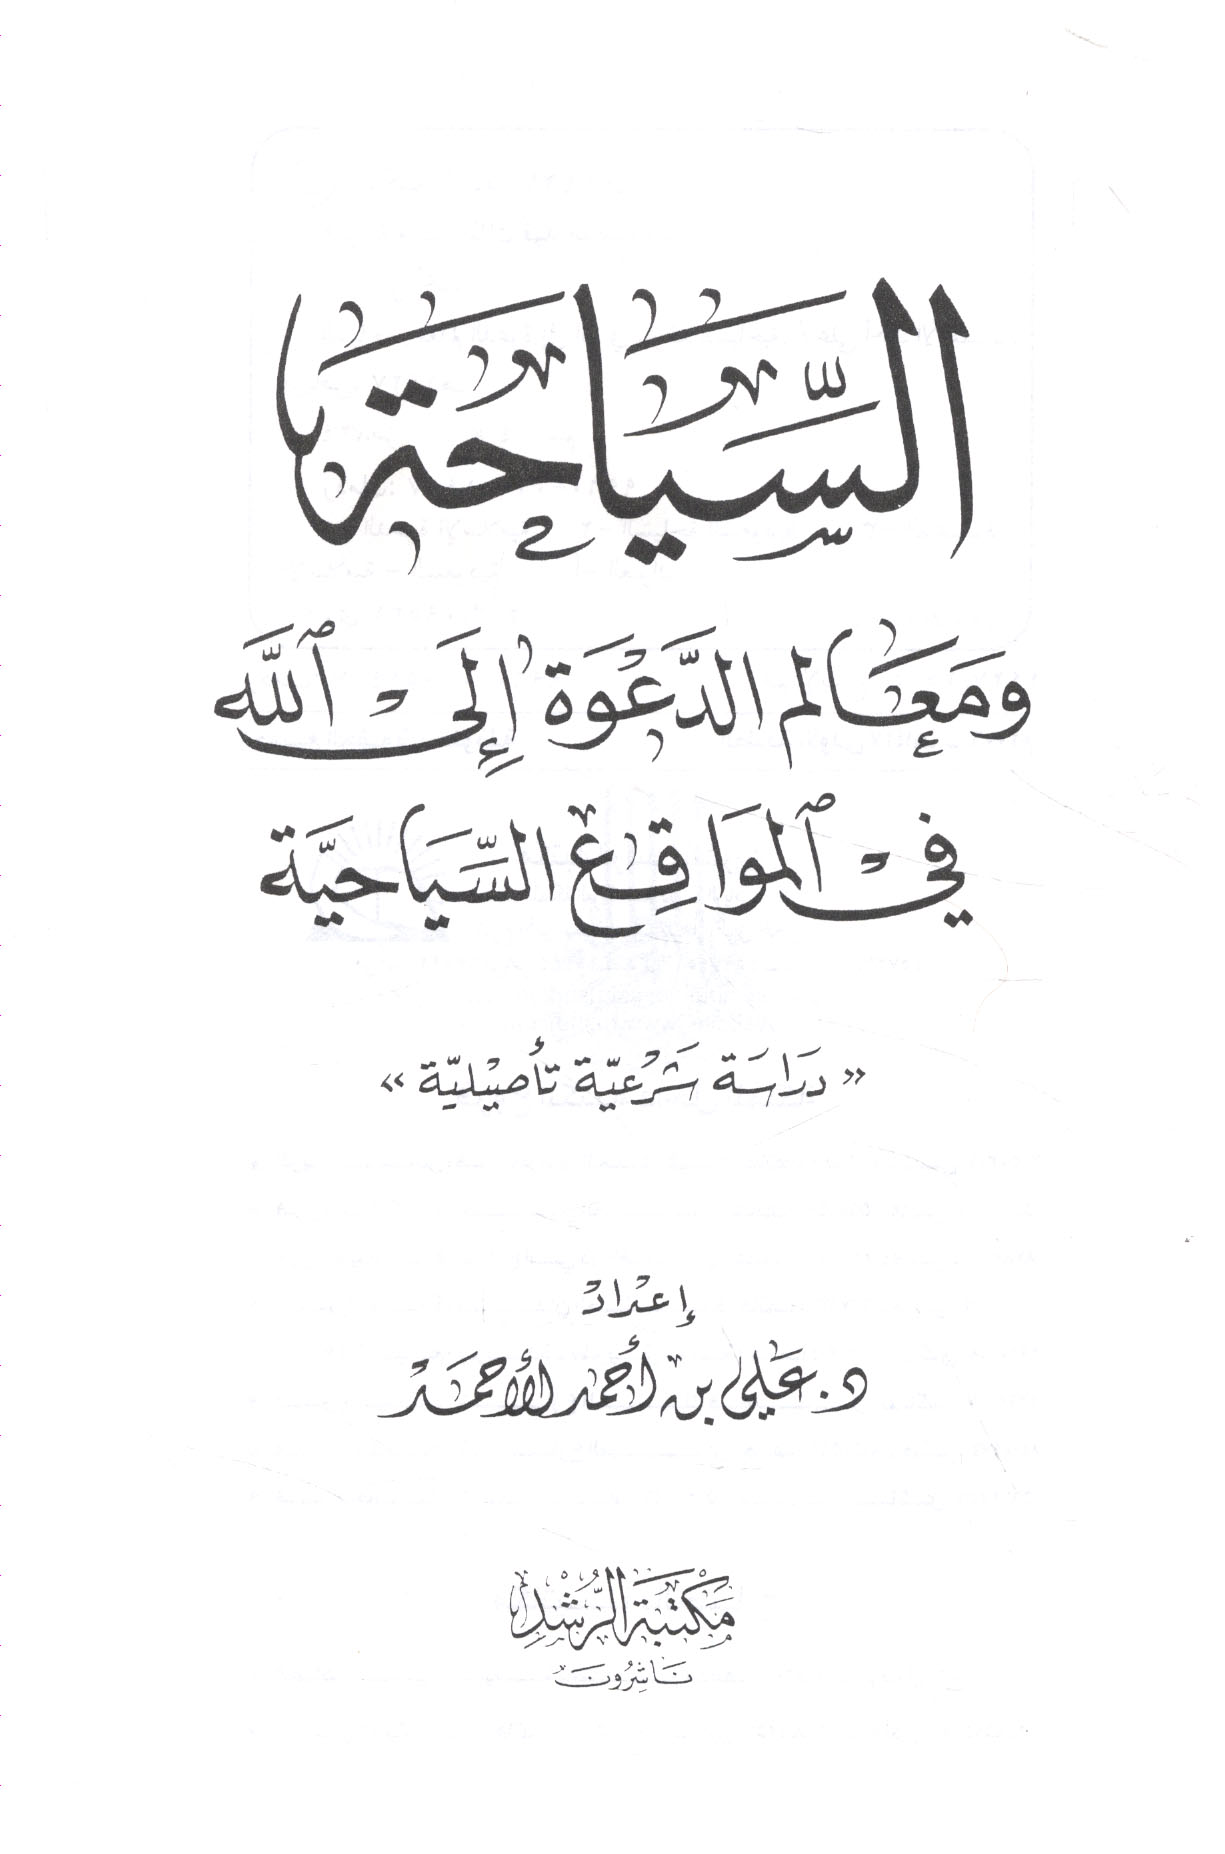 السِّيَاحَة
وَمَعَالم الدَّعْوَة إِلَى اللَّه
في المَوَاقِع السَّيَاحيَّة
« دَرَاسَة شَرْعيَّة تأصيْليَّة »
إعْدَادْ
د. عَلي بن أحمد الأحمَدْ
مَكتَبَة الرُّشْدِ
نَاشِرُونَ